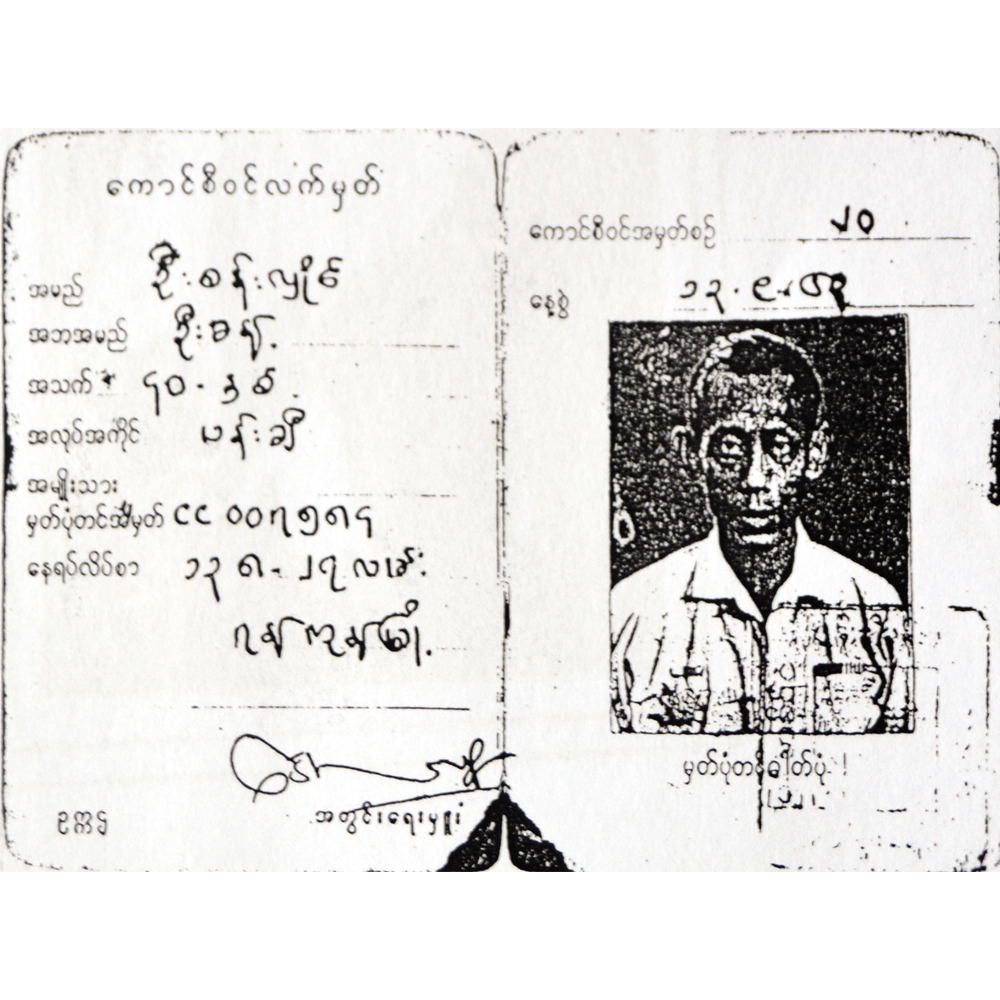 ကောင်စီဝင်လက်မှတ်
အမည် ဦးစန်းလှိုင်
အဘအမည် ဦးခန့်
အသက် ၄၀ - နှစ်
အလုပ်အကိုင် ပန်းချီ
အမျိုးသား
မှတ်ပုံတင်အမှတ် CC ၀၀၇၅၈၄
နေရပ်လိပ်စာ ၁၃၈ - ၂၇လမ်း
ရန်ကုန်မြို့
အတွင်းရေးမှူး
ကောင်စီဝင်အမှတ်စဉ် ၂၀
နေ့စွဲ ၁၃.၉.၈၃
မှတ်ပုံတင်ဓါတ်ပုံ